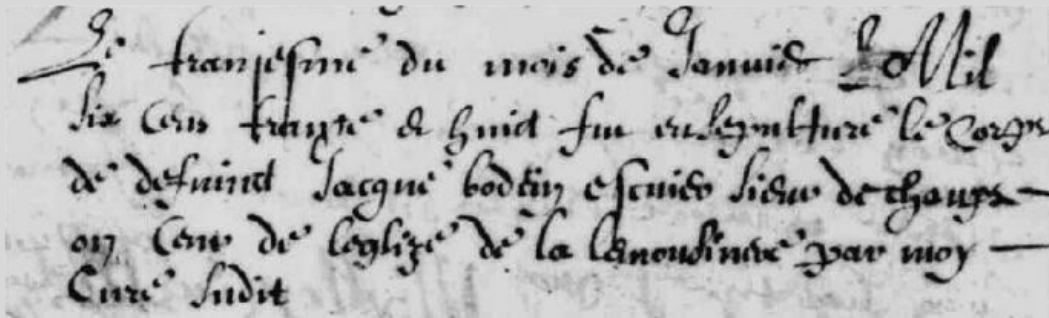 Le tranjesme du mois de Janvier Mil
six cens trante et huict fut ensepulturé le corps
de defuinct Jacque bodin escuier sieur de champs
on ceur de leglize de la lemousinere par moy
Curé sudit